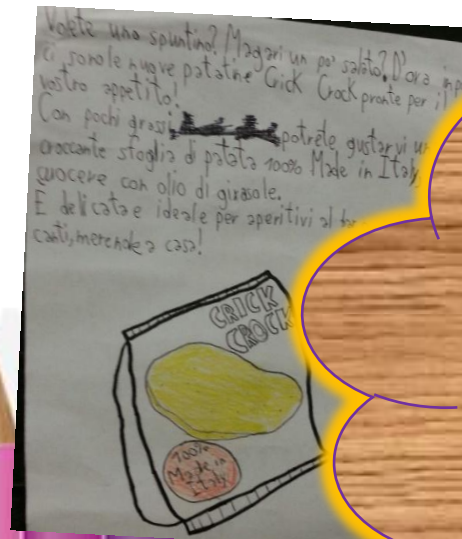 Volete uno spuntino? Magari un po' salato? D'ora in p
ci sono le nuove patatine Crick Crock pronte per il
vostro appetito!
Con pochi grassi potrete gustarvi u
croccante sfoglia di patata 100% Made in Italy
cuocere con olio di girasole.
È delicata e ideale per aperitivi al
canti, merende a casa!
CRICK
CROCK
100%
Made in
Italy